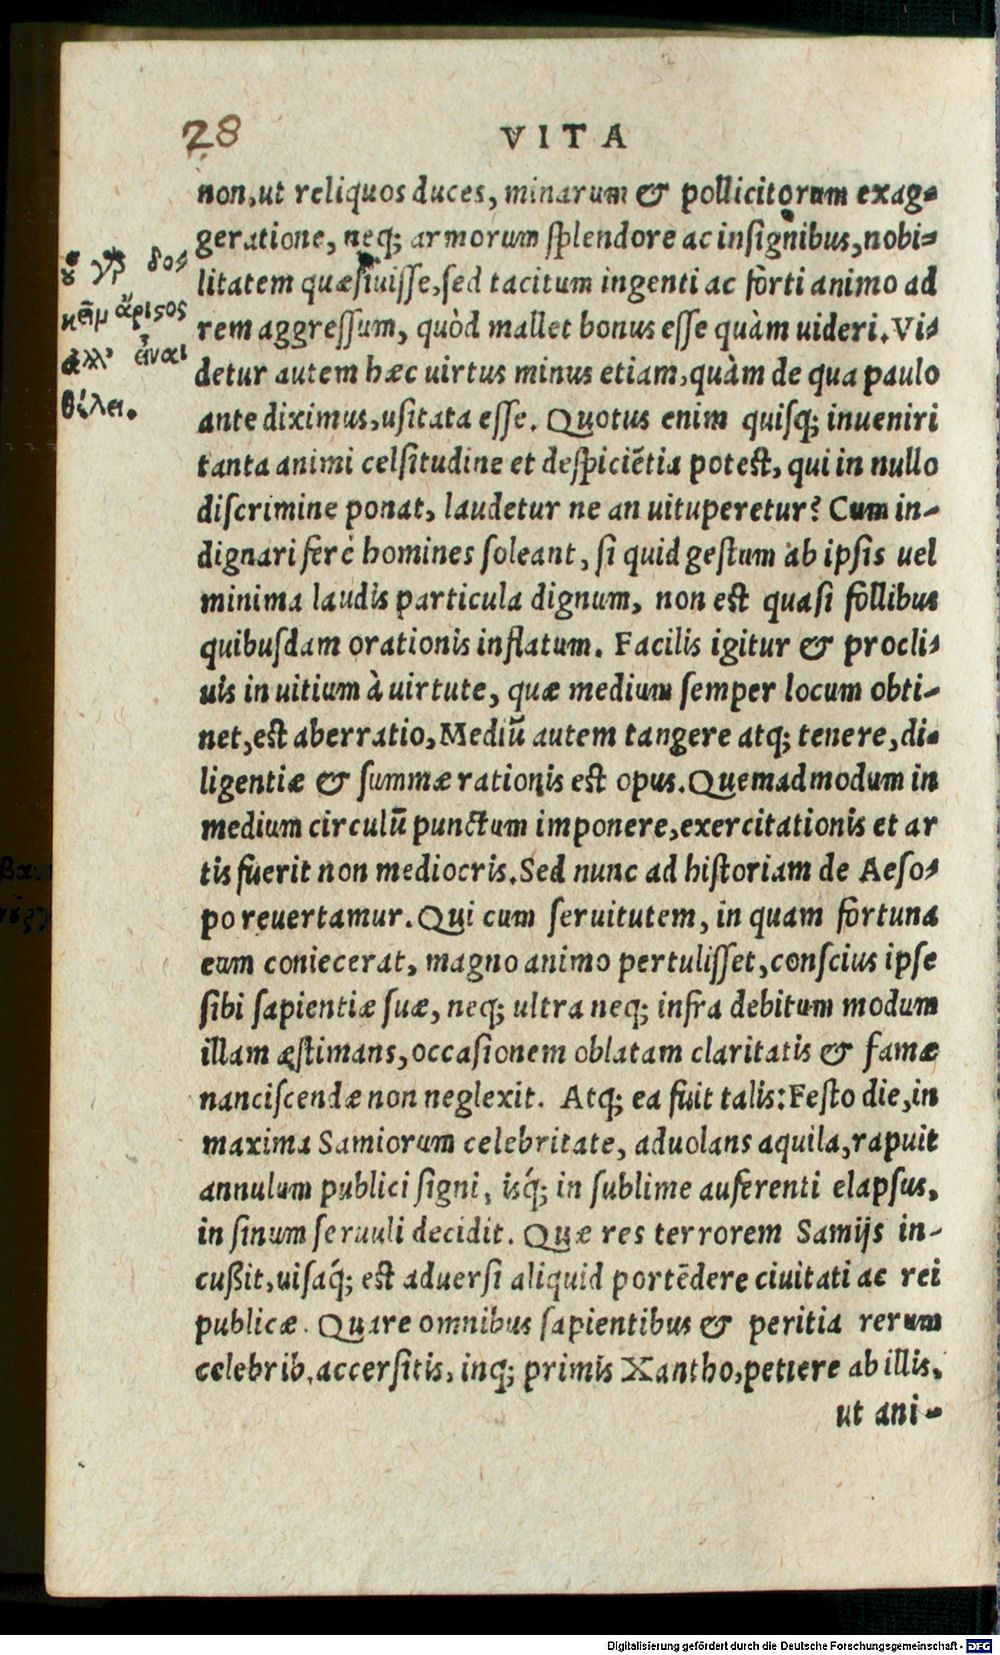 28
VITA
non, ut reliquos duces, minarum & pollicitorum exag-
geratione, neq; armorum ſplendore ac inſignibus, nobi-
litatem quæſiuiſſe, ſed tacitum ingenti ac forti animo ad
rem aggreſſum, quòd mallet bonus eſſe quàm uideri. Vi-
detur autem hæc uirtus minus etiam, quàm de qua paulo
ante diximus, uſitata eſſe. Quotus enim quiſq; inueniri
tanta animi celſitudine et deſpiciẽtia poteſt, qui in nullo
diſcrimine ponat, laudetur ne an uituperetur? Cum in-
dignari ferè homines ſoleant, ſi quid geſtum ab ipſis uel
minima laudis particula dignum, non eſt quaſi follibus
quibuſdam orationis inflatum. Facilis igitur & procli-
uis in uitium à uirtute, quæ medium ſemper locum obti-
net, eſt aberratio, Mediũ autem tangere atq; tenere, di-
ligentiæ & ſummæ rationis eſt opus. Quemadmodum in
medium circulũ punctum imponere, exercitationis et ar
tis fuerit non mediocris. Sed nunc ad hiſtoriam de Aeſo-
po reuertamur. Qui cum ſeruitutem, in quam fortuna
eum coniecerat, magno animo pertuliſſet, conſcius ipſe
ſibi ſapientiæ ſuæ, neq; ultra neq; infra debitum modum
illam æſtimans, occaſionem oblatam claritatis & famæ
nanciſcendæ non neglexit. Atq; ea fuit talis: Feſto die, in
maxima Samiorum celebritate, aduolans aquila, rapuit
annulum publici ſigni, isq́; in ſublime auferenti elapſus,
in ſinum ſeruuli decidit. Quæ res terrorem Samijs in-
cußit, uiſaq́; eſt aduerſi aliquid portẽdere ciuitati ac rei
publicæ. Quare omnibus ſapientibus & peritia rerum
celebrib. accerſitis, inq; primis Xantho, petiere ab illis,
ut ani-
ἄριςος
θέλει.
Digitalisierung gefördert durch die Deutsche Forschungsgemeinschaft - DFG